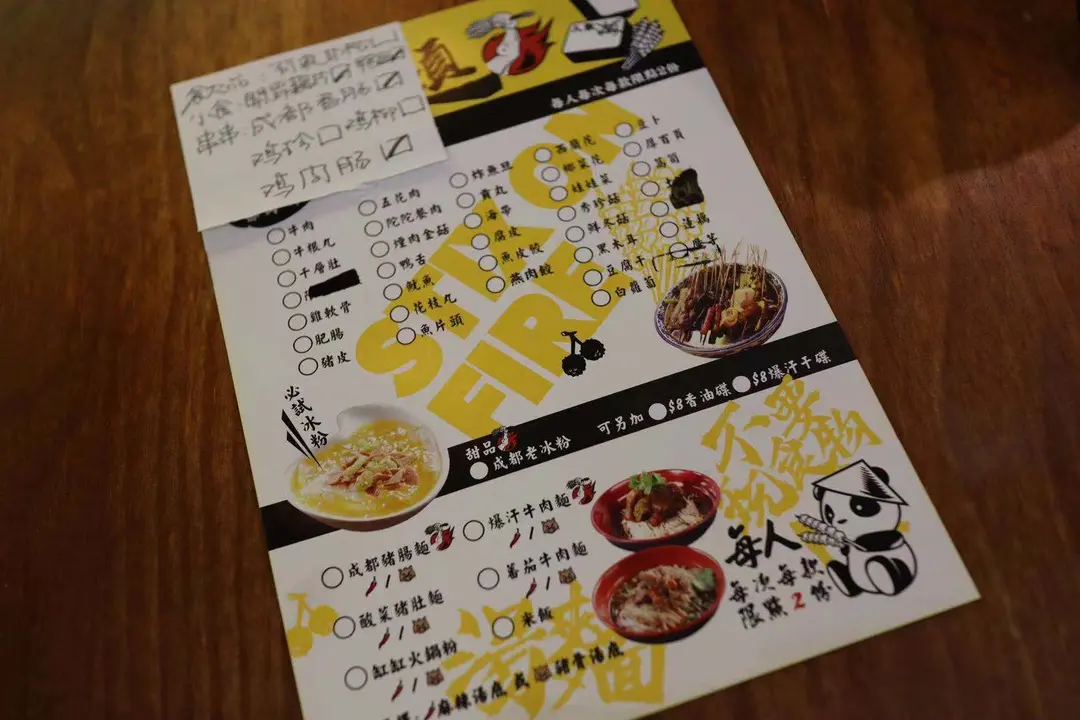 小食:
串串:成都香腸
鸡柳
鸡肉肠
每人每次每款限點2份
牛肉
牛根丸
千層肚
雞軟骨
肥腸
豬皮
五花肉
陀陀餐肉
煙肉金菇
鴨舌
魷魚
花枝丸
魚片頭
炸魚豆
貢丸
海帶
腐皮
魚皮餃
燕肉餃
西蘭花
椰菜花
娃娃菜
秀珍菇
鮮冬菇
黑木耳
豆腐干
白蘿蔔
豆卜
厚百頁
萵筍
蓮藕
STIX ON
FIRE
必試冰粉
甜品
成都老冰粉
可另加
$8香油碟
$8爆汗干碟
成都豬腸麵
/
酸菜豬肚麵
/
缸缸火鍋粉
/
爆汗牛肉麵
/
蕃茄牛肉麵
/
米飯
湯麵
麻辣湯底 或 豬骨湯底
不要
玩食物
每人
每次每款
限點2份